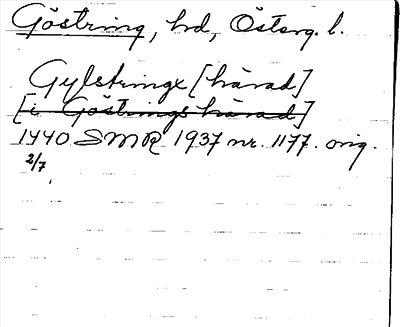 Göstring, hd, Österg. l.
Gylstringx [härad]
[i Göstrings härad]
1440 SMR 1937 nr. 1177. orig.
2/7